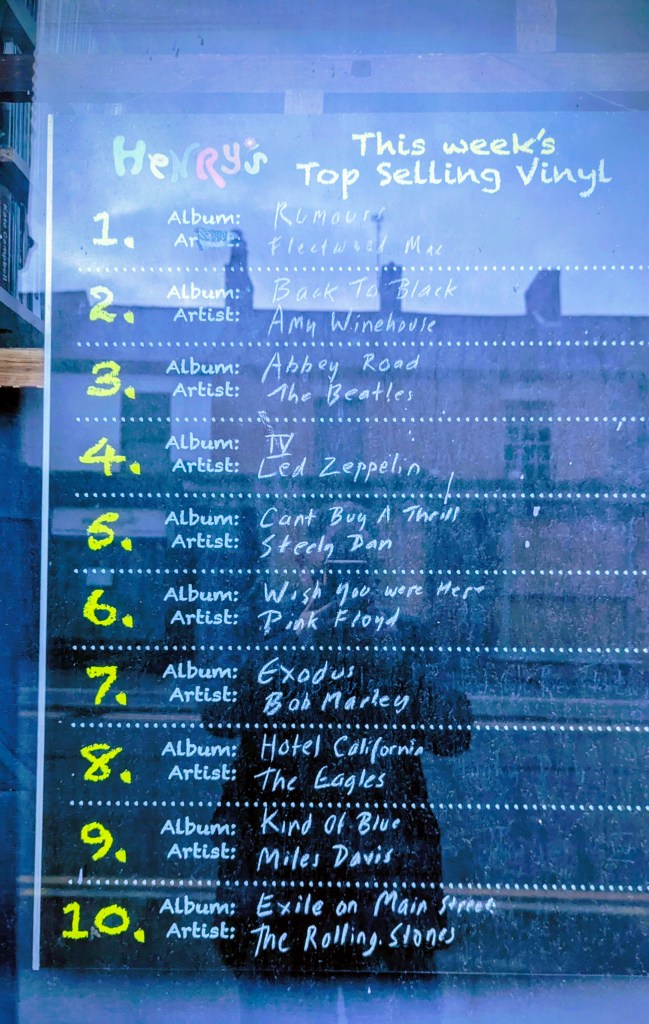 HeNRY's
This week's
Top Selling Vinyl
1. Album: Rumours
Artist: Fleetwood Mac
2. Album: Back To Black
Artist: Amy Winehouse
3. Album: Abbey Road
Artist: The Beatles
4. Album: IV
Artist: Led Zeppelin
5. Album: Cant Buy A Thrill
Artist: Steely Dan
6. Album: Wish You were Here
Artist: Pink Floyd
7. Album: Exodus
Artist: Bob Marley
8. Album: Hotel California
Artist: The Eagles
9. Album: Kind Of Blue
Artist: Miles Davis
10. Album: Exile on Main Street
Artist: The Rolling Stones